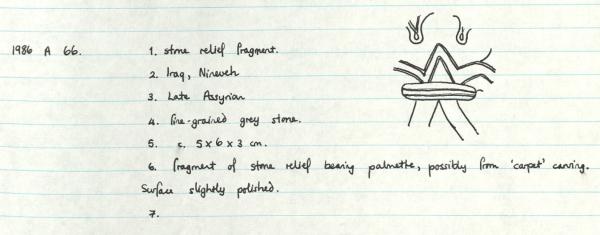 1986 A 66. 1. stone relief fragment.
2. Iraq, Nineveh
3. Late Assyrian
4. fine-grained grey stone.
5. c. 5 x 6 x 3 cm.
6. fragment of stone relief bearing palmette, possibly from 'carpet' carving.
Surface slightly polished.
7.